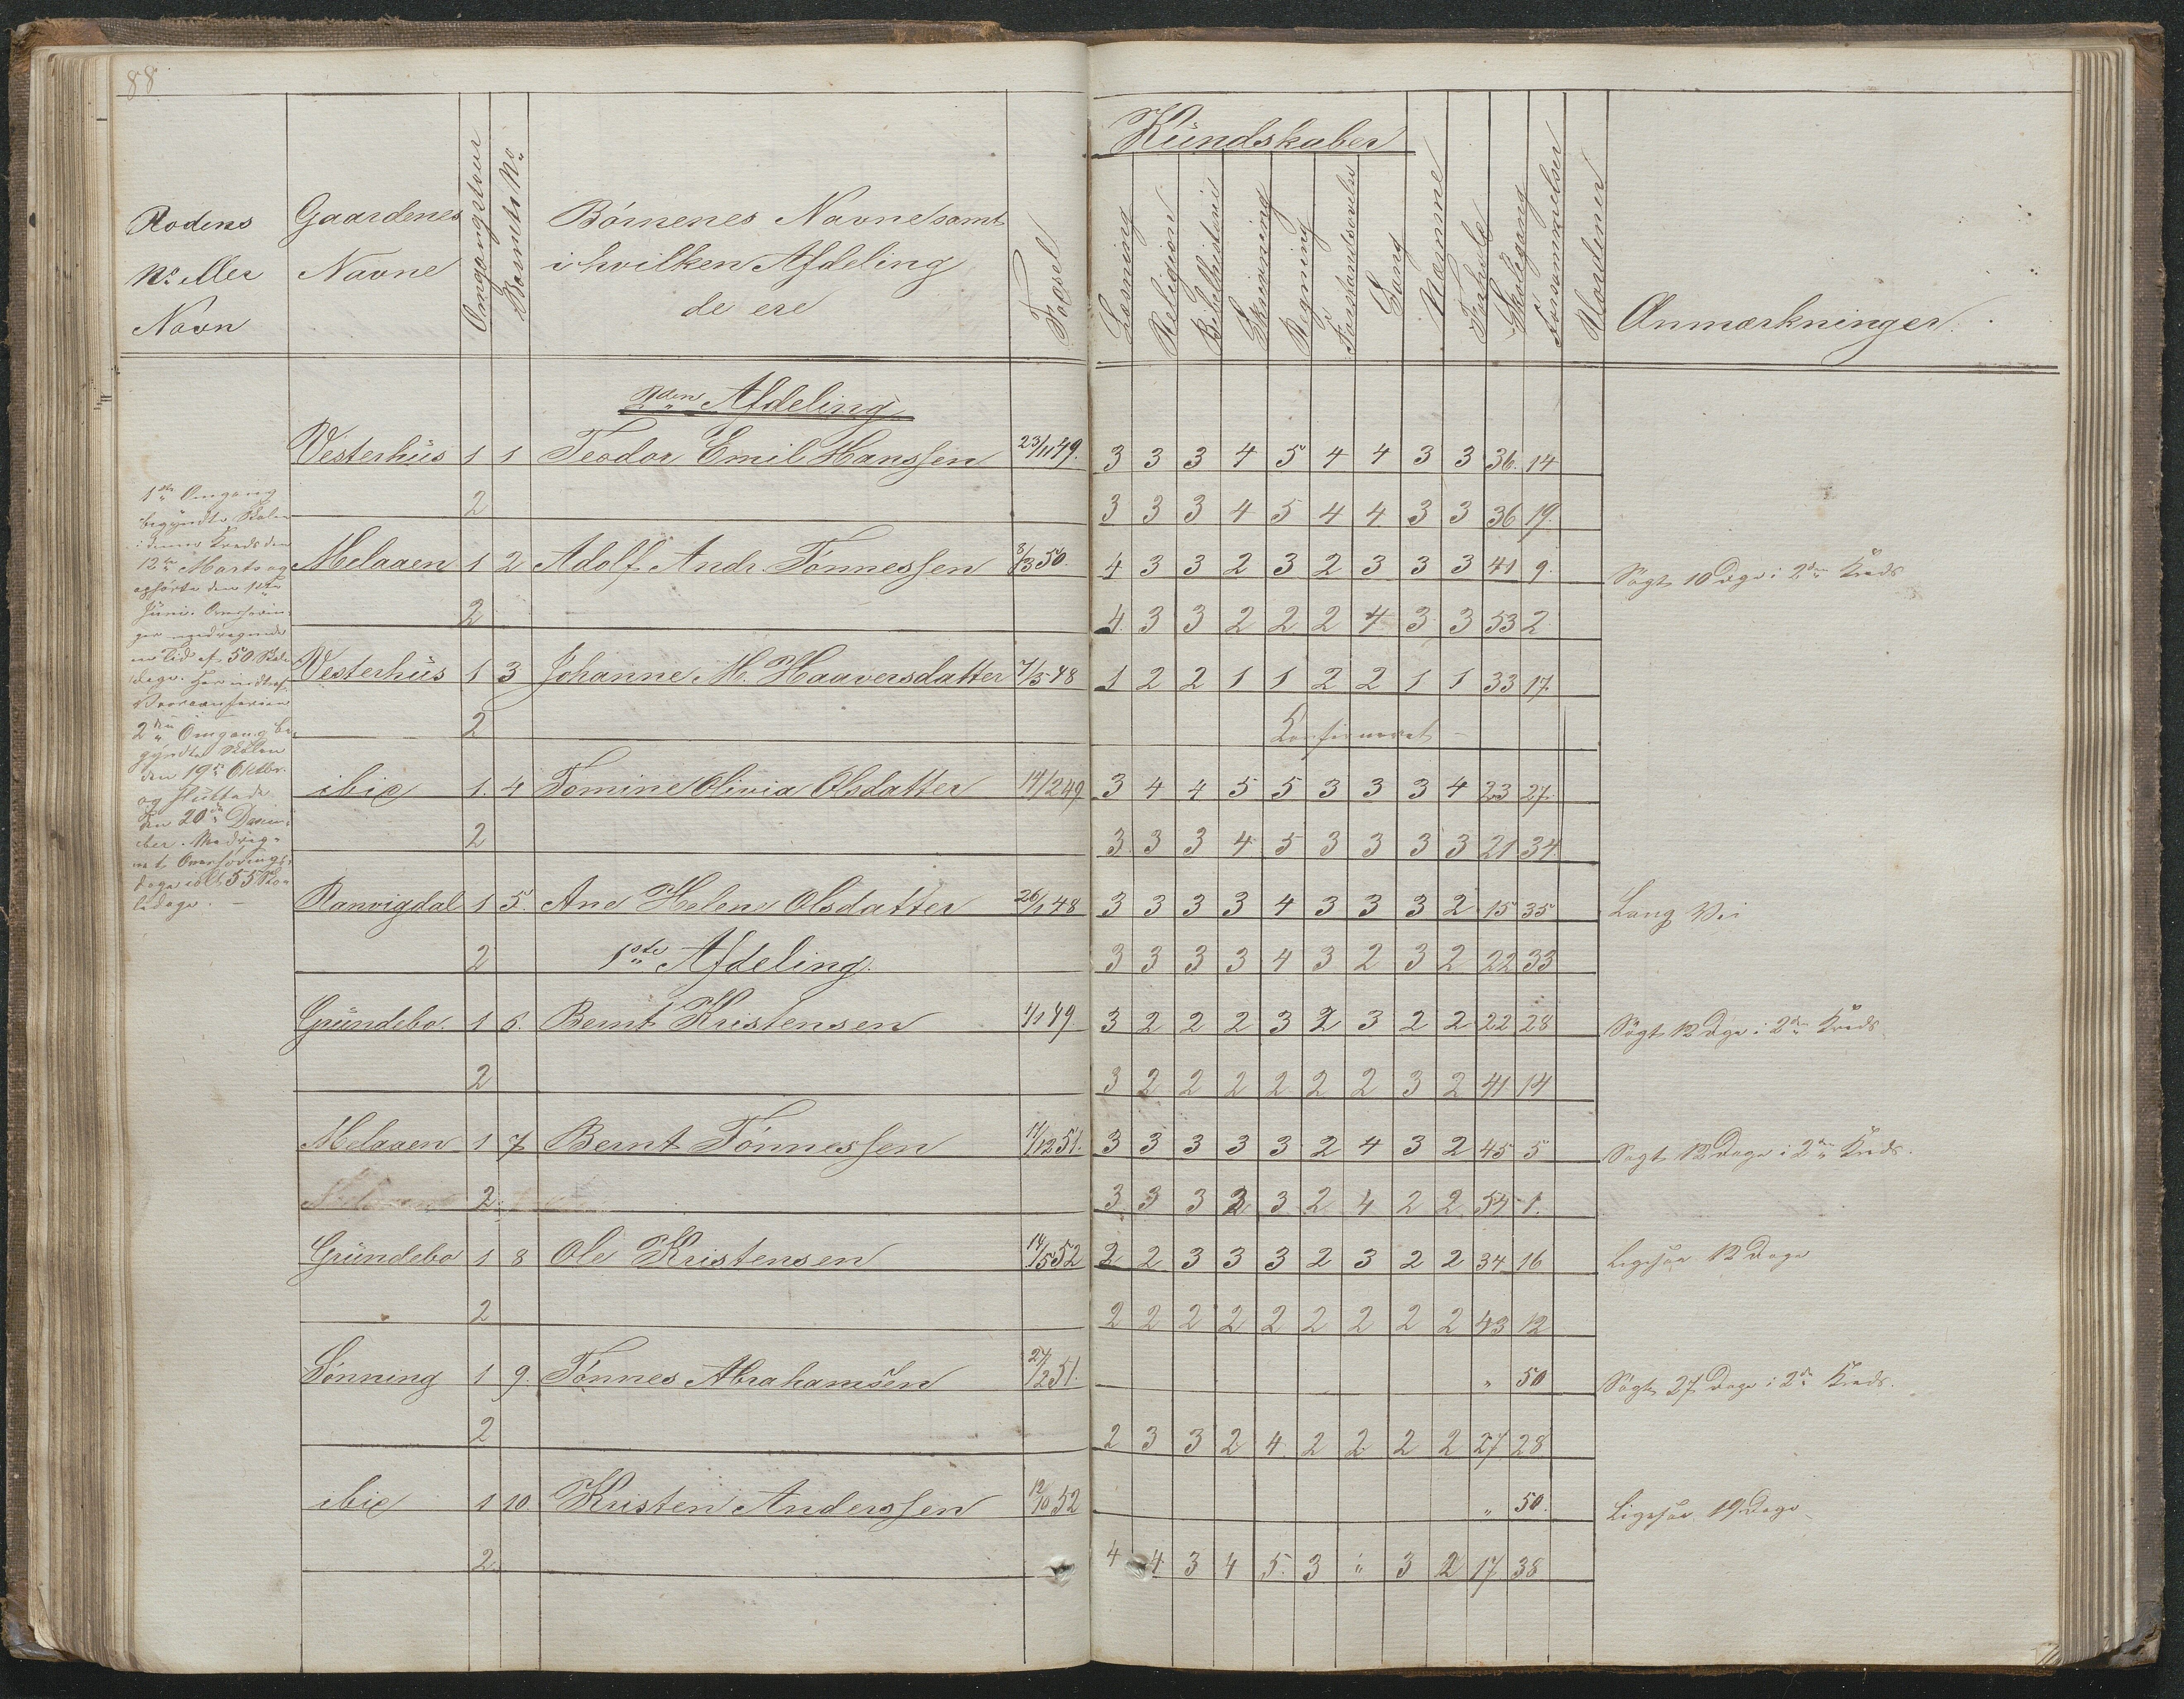 88
Rodens
No eller
Navn
Gaardenes
Navne
Omgangstour
Barnets No
Børnenes Navne samt
i hvilken Afdeling
de ere
Føsel
Kundskaber
Læsning
Religion
Bibelhistorie
Skrivning
Regning
Forstandsøvelse
Sang
Næmme
Forhold
Skolegang
Forsømmelser
Anmærkninger
2den Afdeling
Vesterhüs 1 1 Teodor Emil Hanssen 23/11 49. 3 3 3 4 5 4 4 3 3 36. 14
2 3 3 3 4 5 4 4 3 3 36 19.
Melaaen 1 2 Adolf Andr. Tønnessen 8/13 50. 4 3 3 2 3 2 3 3 3 41 9. Søgt 10 Dage i 2den Kreds
2 4 3 3 2 2 2 4 3 3 53 2
Vesterhüs 1 3 Johanne M. Haaversdatter 7/5 48 1 2 2 1 1 2 2 1 1 33 17
2 Konfirmeret
ibid 1. 4 Tomine Olivia Olsdatter 14/2 49 3 4 4 5 5 3 3 3 4 23 27.
2 3 3 3 4 5 3 3 3 3 21 34
Ranvigdal 1 5. Ane Helene Olsdatter 26/1 48 3 3 3 3 4 3 3 3 2 15 35 Lang Vei
2 1ste Afdeling. 3 3 3 3 4 3 2 3 2 22 33
Gründebo. 1 6. Bernt Kristensen 4/1 49 3 2 2 2 3 2 3 2 2 22 28 Søgt 12 Dage i 2den Kreds
2 3 2 2 2 2 2 2 3 2 41 14
Melaaen 1 7 Bernt Tønnessen 14/12 51. 3 3 3 3 3 2 4 3 2 45 5 Søgt 12 Dage i 2den Kreds.
2 3 3 3 3 3 2 4 2 2 54 1.
Gründebo 1 8 Ole Kristensen 14/5 52 2 2 3 3 3 2 3 2 2 34 16 Ligesaa 12 Dage
2 2 2 2 2 2 2 2 2 2 43 12
Lønning 1 9. Tønnes Abrahamsen 27/2 51. " 50 Søgt 27 Dage i 2den Kreds.
2 2 3 3 2 4 2 2 2 2 27 28
ibid 1 10 Kristen Anderssen 12/10 52 " 50. Ligesaa 19 Dage
2 4 4 3 4 5. 3 " 3 2 17 38
1ste Omgang
begyndte Skolen
i denne Kreds den
12te Marts og
ophørte den 1ste
Juni.
en Tid af 50 Skole
dage. Her indtraf
2den Omgang be
gyndte Skolen
den 19de Oktbr.
og sluttede
den 20de Decem
ber. Medreg
net Overførings
dage i alt 55 Sko
ledage.